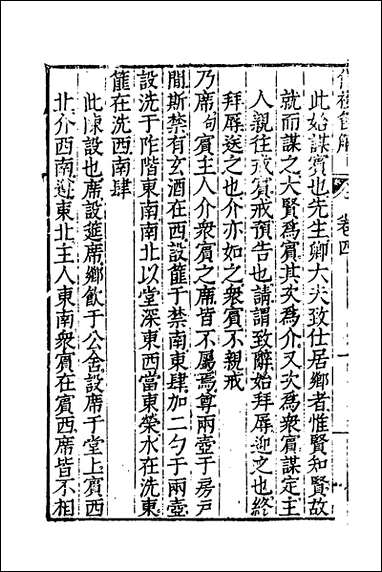 卷四
此始謀賓也先生鄉大夫致仕居鄉者惟賢知賢故
就而謀之大賢為賓其次為介又次為衆賓謀定主
人親往戒賓戒預告也請謂致辭始拜辱迎之也終
拜辱送之也介亦如之衆賓不親戒
乃席句賓主人介衆賓之席皆不屬焉尊兩壺于房戶
間斯禁有玄酒在西設篚于禁南東肆加二勺于兩壺
設洗于阼階東南南北以堂深東西當東榮水在洗東
篚在洗西南肆
此陳設也席設筵席鄉飲于公舍設席于堂上賓西
北介西南遵東北主人東南衆賓在賓西席皆不相